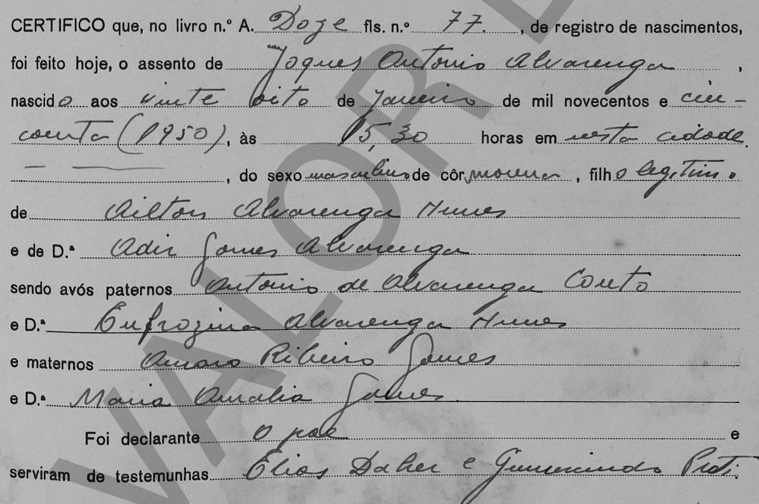 CERTIFICO que, no livro n.º A. Doze fls. n.º 77. , de registro de nascimentos,
foi feito hoje, o assento de Joques Antonio Alvarenga ,
nascido aos vinte oito de Janeiro de mil novecentos e cin-
coenta (1950), às 15,30 horas em nesta cidade.
, do sexo masculino de côr morena , filho legitimo
de Ailton Alvarenga Nunes
e de D.ª Adir Gomes Alvarenga
sendo avós paternos Antonio de Alvarenga Couto
e D.ª Eufrozina Alvarenga Nunes
e maternos Amaro Ribeiro Gomes
e D.ª Maria Amalia Gomes
Foi declarante o pae e
serviram de testemunhas Elias Daher e Gumercindo
VALOR